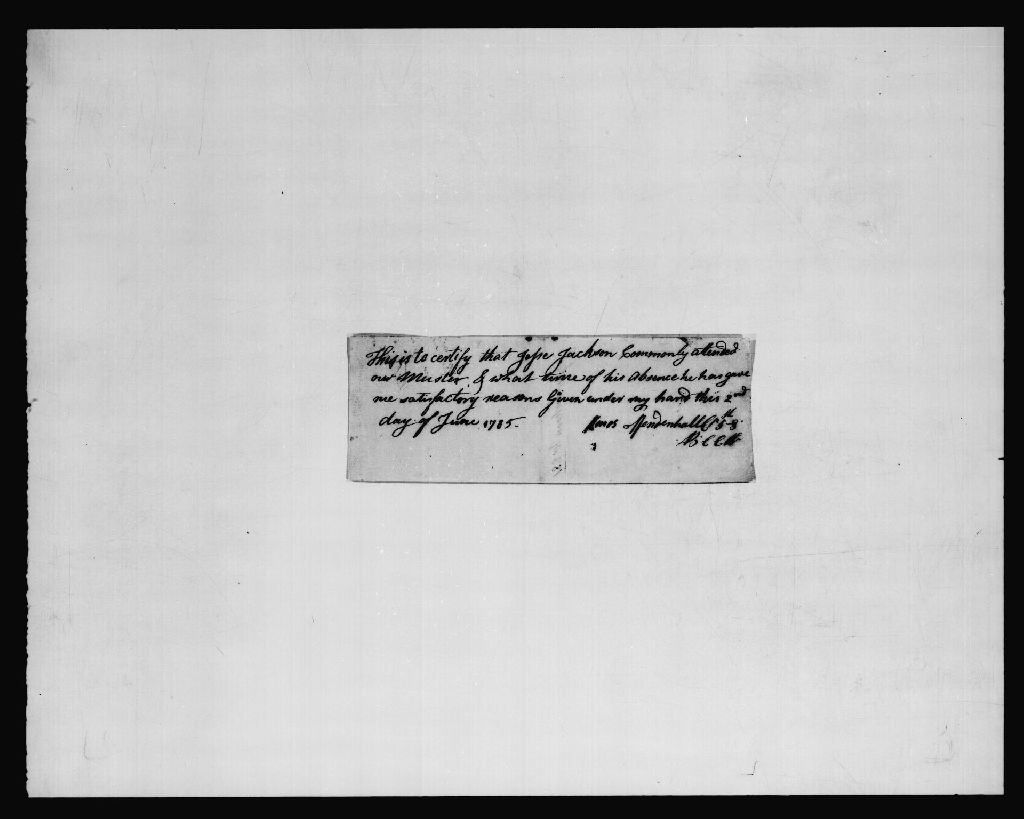 This is to certify that Jesse Jackson Commonly attended
our Muster & what time of his Absence he has gave
me satisfactory reasons Given under my hand this 2nd
day of June 1785.
Mendenhall Cpt 5th 8
B C C M